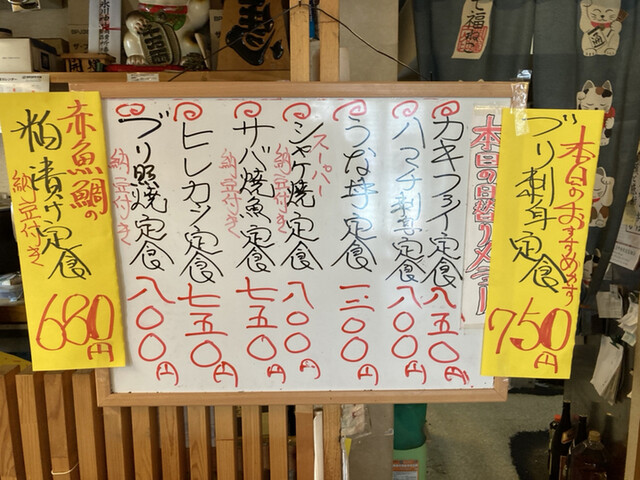 本日のおすすめです
ブリ刺身定食
750円
本日の日替りメニュー
カキフライ定食 八五〇円
ハマチ刺身定食 八〇〇円
うな丼定食 一二〇〇円
スーパー
シャケ焼定食 八〇〇円
納豆付き
サバ焼魚定食 七五〇円
納豆付き
ヒレカツ定食 七五〇円
ブリ照焼定食 八〇〇円
納豆付き
赤魚鯛の
粕漬け定食
納豆付き
680円